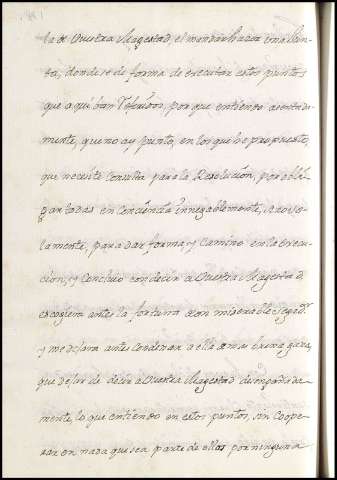 ta de Vuestra Magestad, el mandar hacer una Jun-
ta, donde se dé forma de executar estos puntos
que aqui van referidos, porque entiendo acertada-
mente, que no ay punto, en los que he propuesto,
que necesite Consulta para la Resolucion, por obli-
gar todas en Conciencia innegablemente, sino so-
lamente, para dar forma, y camino en la execu-
cion, y Concluio con decir a Vuestra Magestad,
escogiera antes la fortuna con miserable
y me dejara antes condenar a ella
que dejar de decir a Vuestra Magestad desengañada-
mente, lo que entiendo en estos puntos, sin Coope-
rar en nada que sea parte de ellos por ninguna